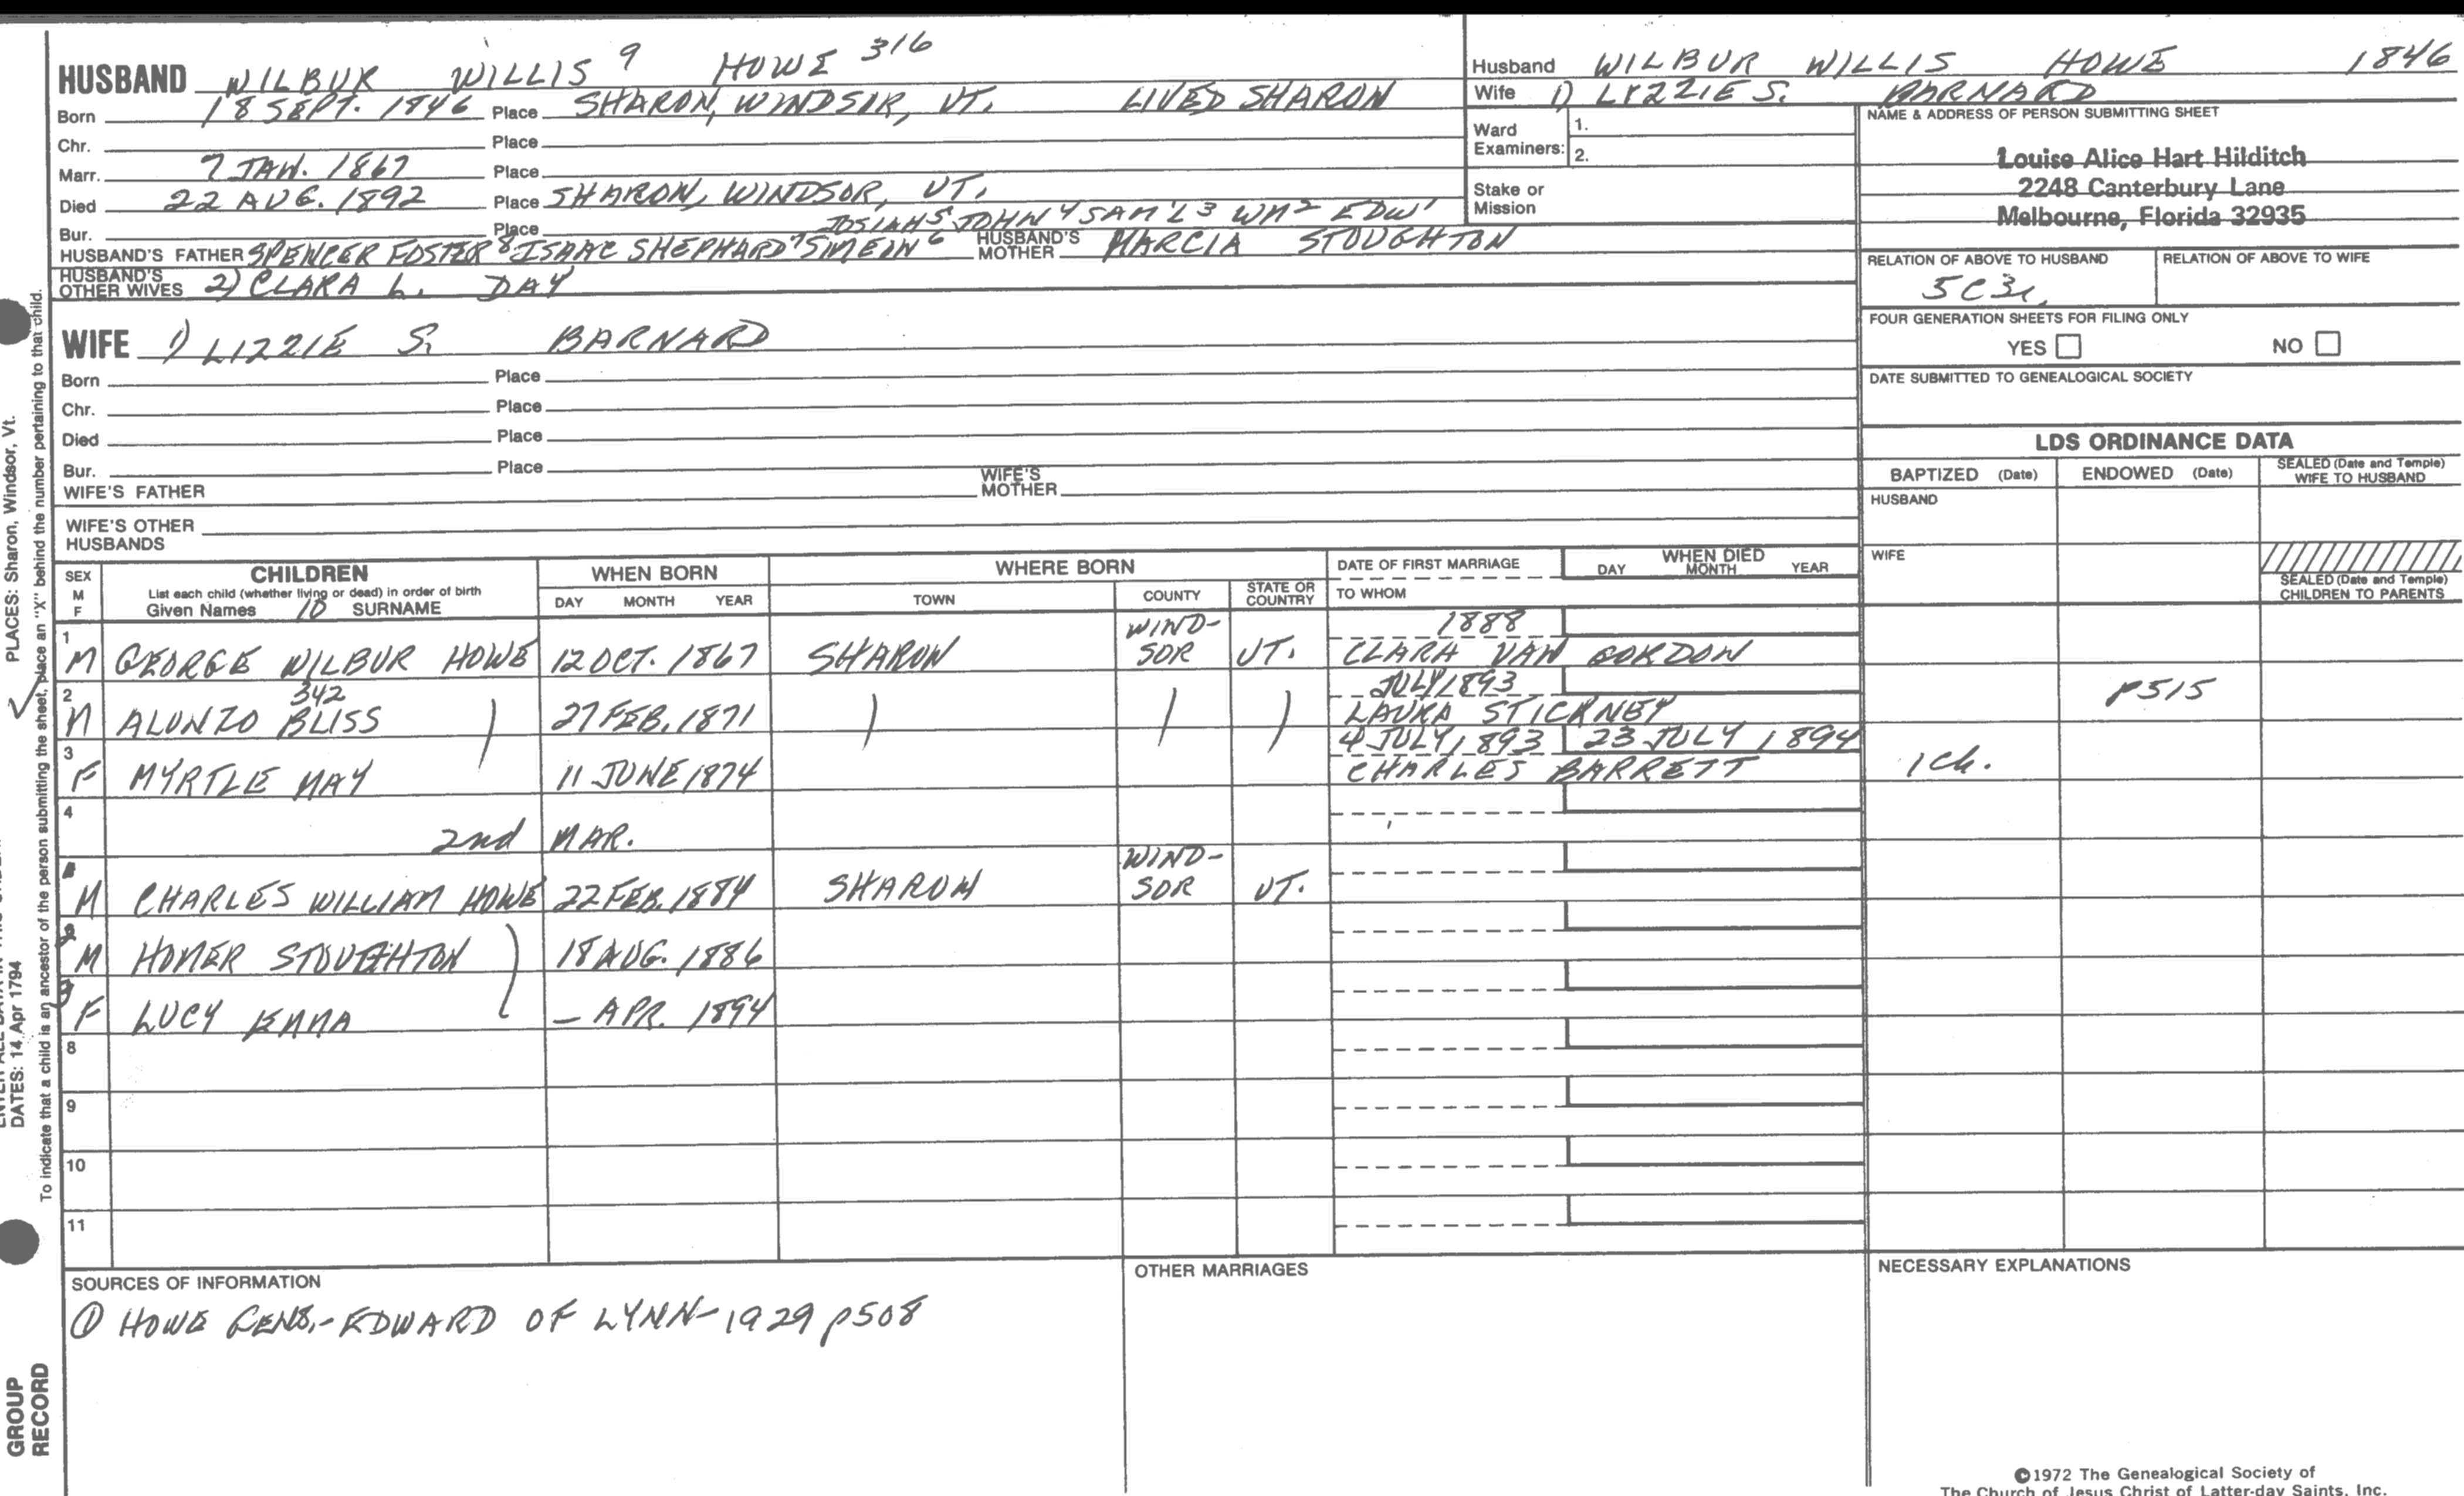 HUSBAND WILBUR WILLIS 9 HOWE 316
Born 18 SEPT. 1846 Place SHARON, WINDSOR, VT. LIVED SHARON
Chr. Place
Marr. 7 JAN. 1867 Place
Died 22 AUG. 1892 Place SHARON, WINDSOR, VT.
Bur. Place JOSIAH 5 JOHN 4 SAM'L 3 WM 2 EDW 1
HUSBAND'S FATHER SPENCER FOSTER 8 ISAAC SHEPHARD 7 6 HUSBAND'S MOTHER MARCIA STOUGHTON
HUSBAND'S OTHER WIVES 2) CLARA L. DAY
Husband WILBUR WILLIS HOWE 1846
Wife 1) LIZZIE S. BARNARD
Ward Examiners: 1.
2.
Stake or Mission
NAME & ADDRESS OF PERSON SUBMITTING SHEET
Louise Alice Hart Hilditch
2248 Canterbury Lane
Melbourne, Florida 32935
RELATION OF ABOVE TO HUSBAND RELATION OF ABOVE TO WIFE
5C3r.
FOUR GENERATION SHEETS FOR FILING ONLY
YES NO
DATE SUBMITTED TO GENEALOGICAL SOCIETY
WIFE 1) LIZZIE S. BARNARD
Born Place
Chr. Place
Died Place
Bur. Place
WIFE'S FATHER WIFE'S MOTHER
WIFE'S OTHER HUSBANDS
LDS ORDINANCE DATA
BAPTIZED (Date) ENDOWED (Date) SEALED (Date and Temple) WIFE TO HUSBAND
HUSBAND
WIFE
SEALED (Date and Temple) CHILDREN TO PARENTS
SEX M F CHILDREN WHEN BORN WHERE BORN DATE OF FIRST MARRIAGE WHEN DIED
List each child (whether living or dead) in order of birth
Given Names 10 SURNAME DAY MONTH YEAR TOWN COUNTY STATE OR COUNTRY TO WHOM DAY MONTH YEAR
1 M GEORGE WILBUR HOWE 12 OCT. 1867 SHARON WIND-SOR VT. 1888 CLARA VAN GORDON
2 M ALONZO BLISS 342 27 FEB. 1871 JULY 1893 LAURA STICKNEY P515
3 F MYRTLE MAY 11 JUNE 1874 4 JULY 1893 23 JULY 1894 CHARLES BARRETT 1 Ch.
4
2nd MAR.
1 M CHARLES WILLIAM HOWE 22 FEB. 1884 SHARON WIND-SOR VT.
2 M HOMER STOUGHTON 18 AUG. 1886
3 F LUCY EMMA – APR. 1894
8
9
10
11
SOURCES OF INFORMATION
① HOWE GENS.-EDWARD OF LYNN-1929 p508
OTHER MARRIAGES
NECESSARY EXPLANATIONS
©1972 The Genealogical Society of
The Church of Jesus Christ of Latter-day Saints, Inc.
PLACES: Sharon, Windsor, Vt.
To indicate that a child is an ancestor of the person submitting the sheet, place an "X" behind the number pertaining to that child.
DATES: 14 Apr 1794
GROUP
RECORD